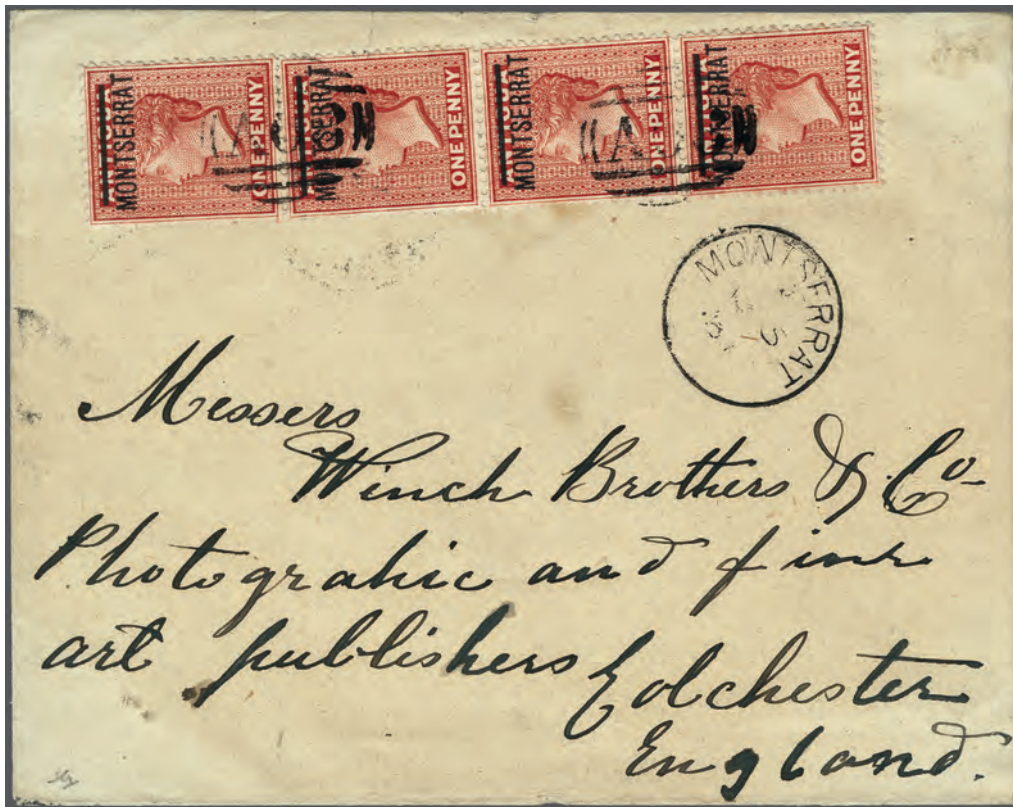 MONTSERRAT ONE PENNY MONTSERRAT ONE PENNY MONTSERRAT ONE PENNY MONTSERRAT ONE PENNY
MONTSERRAT
Messers
Winch Brothers & Co-
Photograhic and fine
art publishers Colchester
England.